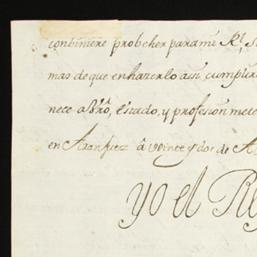 conbiniere probeher para mi Rl. S
mas de que en hazerlo asi, cumplire
nece a Vro, estado, y profesion me te
en Aranjuez â veinte y dos de A
yo el Rey